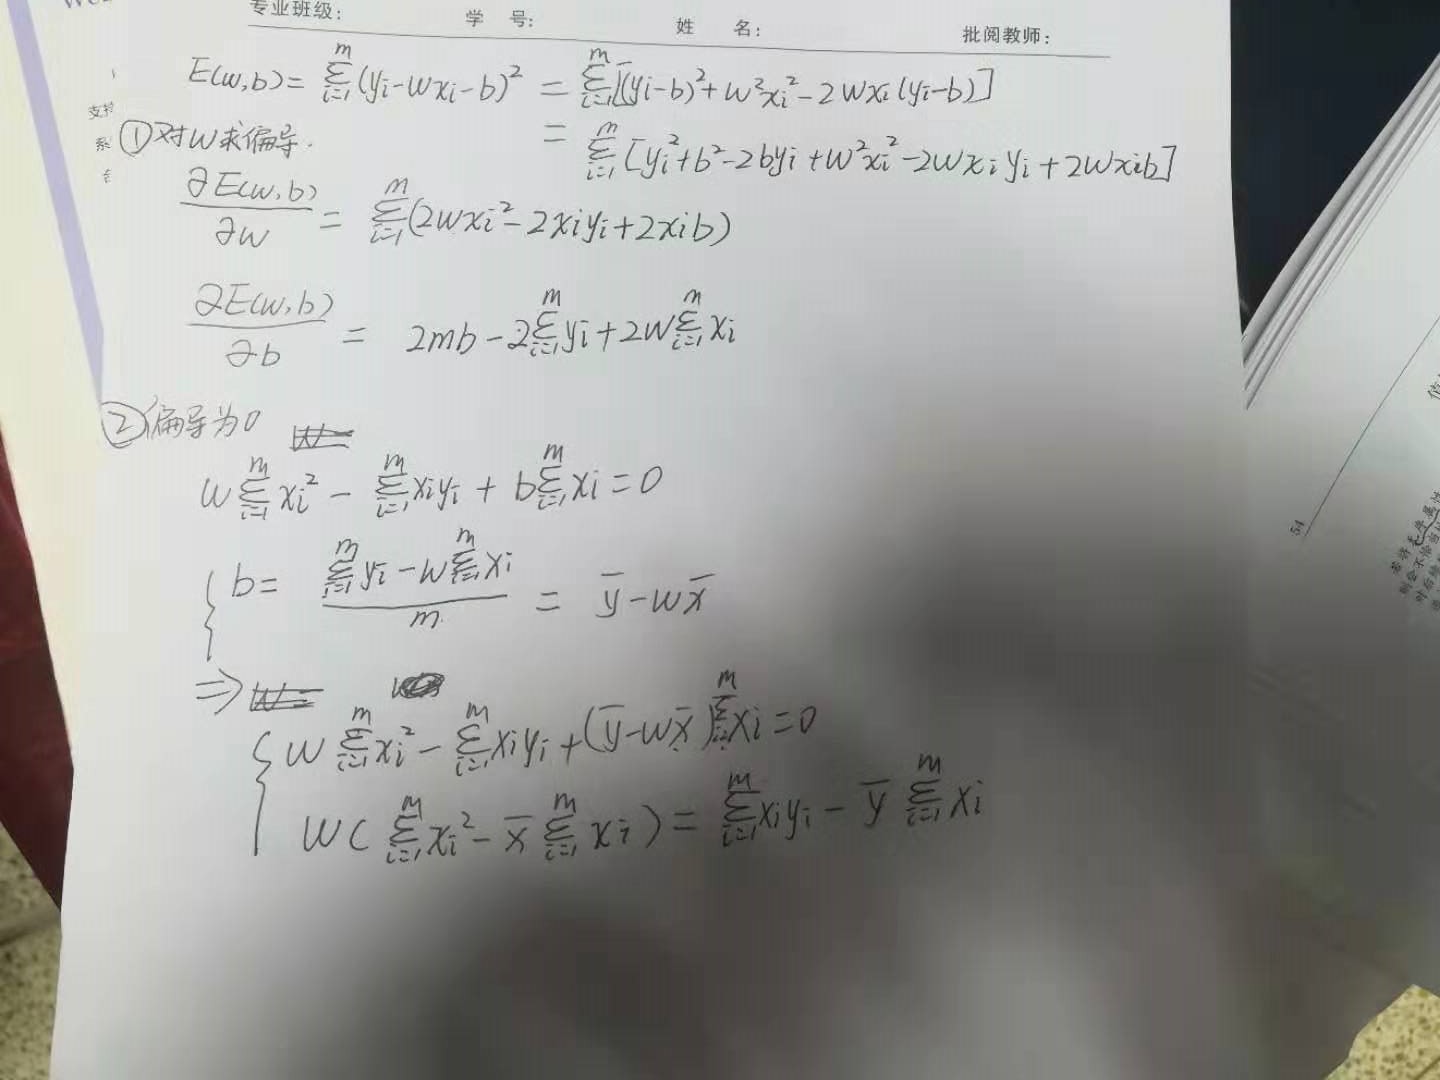 专业班级： 学 号： 姓 名： 批阅教师：
E(w,b) = Σ_{i=1}^{m} (yi - wxi - b)² = Σ_{i=1}^{m} [(yi-b)² + w²xi² - 2wxi(yi-b)]
= Σ_{i=1}^{m} [yi² + b² - 2byi + w²xi² - 2wxiyi + 2wxib]
①对w求偏导.
∂E(w,b)/∂w = Σ_{i=1}^{m} (2wxi² - 2xiyi + 2xib)
∂E(w,b)/∂b = 2mb - 2Σ_{i=1}^{m} yi + 2wΣ_{i=1}^{m} xi
②偏导为0
wΣ_{i=1}^{m} xi² - Σ_{i=1}^{m} xiyi + bΣ_{i=1}^{m} xi = 0
{ b = (Σ_{i=1}^{m} yi - wΣ_{i=1}^{m} xi)/m = y̅ - wx̅
⇒
{ wΣ_{i=1}^{m} xi² - Σ_{i=1}^{m} xiyi + (y̅ - wx̅)Σ_{i=1}^{m} xi = 0
w(Σ_{i=1}^{m} xi² - x̅Σ_{i=1}^{m} xi) = Σ_{i=1}^{m} xiyi - y̅Σ_{i=1}^{m} xi
54